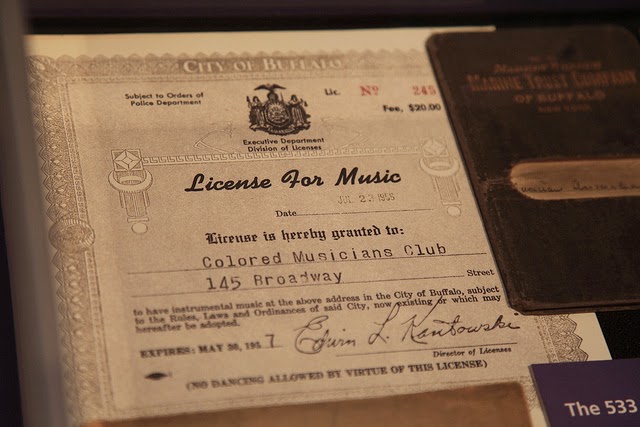 CITY OF BUFFALO
Subject to Orders of
Police Department
Lic. Nº 245
Fee, $20.00
Executive Department
Division of Licenses
License For Music
Date
License is hereby granted to:
Colored Musicians Club
145 Broadway Street
to have instrumental music at the above address in the City of Buffalo, subject
to the Rules, Laws and Ordinances of said City, now existing or which may
hereafter be adopted.
EXPIRES: MAY 30, 1957
Edwin L. Kantowski
Director of Licenses
(NO DANCING ALLOWED BY VIRTUE OF THIS LICENSE)
MARINE TRUST COMPANY
OF BUFFALO
The 533